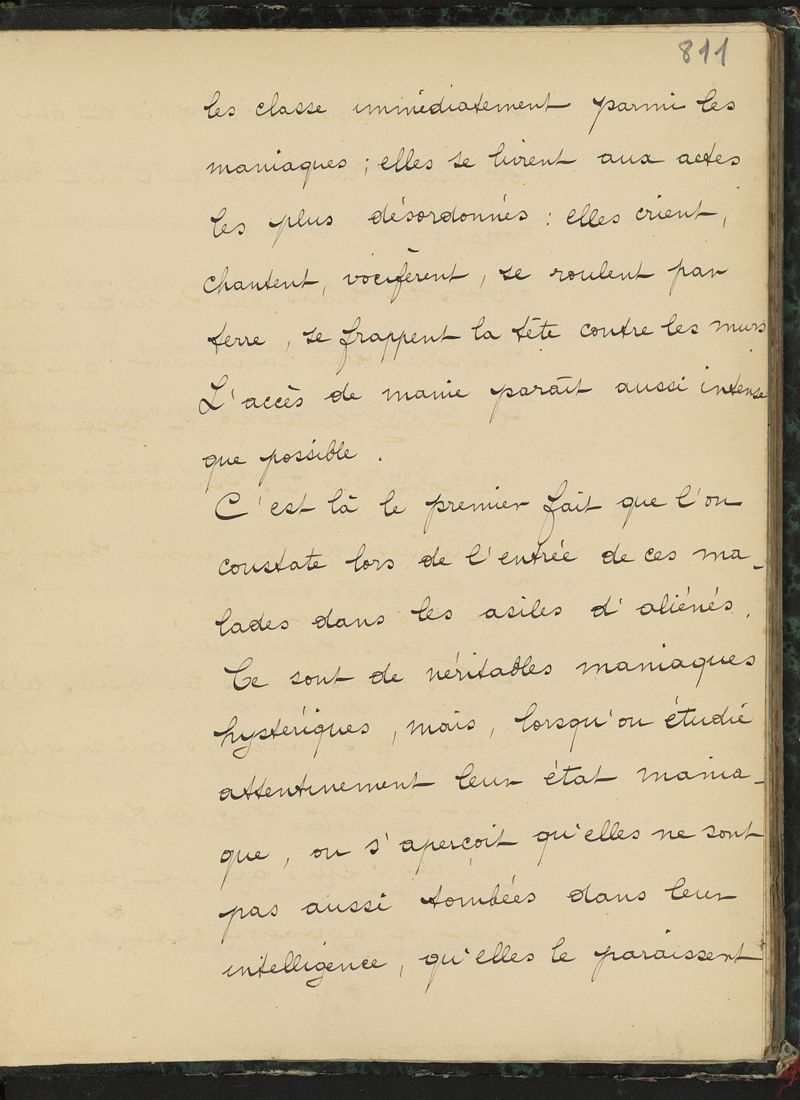 811
les classe immédiatement parmi les
maniaques ; elles se livrent aux actes
les plus désordonnés : elles crient,
chantent, vocifèrent, se roulent par
terre, se frappent la tête contre les murs
L'accès de manie paraît aussi intense
que possible.
C'est là le premier fait que l'on
constate lors de l'entrée de ces ma-
lades dans les asiles d'aliénés.
Ce sont de véritables maniaques
hystériques, mais, lorsqu'on étudie
attentivement leur état mania-
que, on s'aperçoit qu'elles ne sont
pas aussi tombées dans leur
intelligence, qu'elles le paraissent